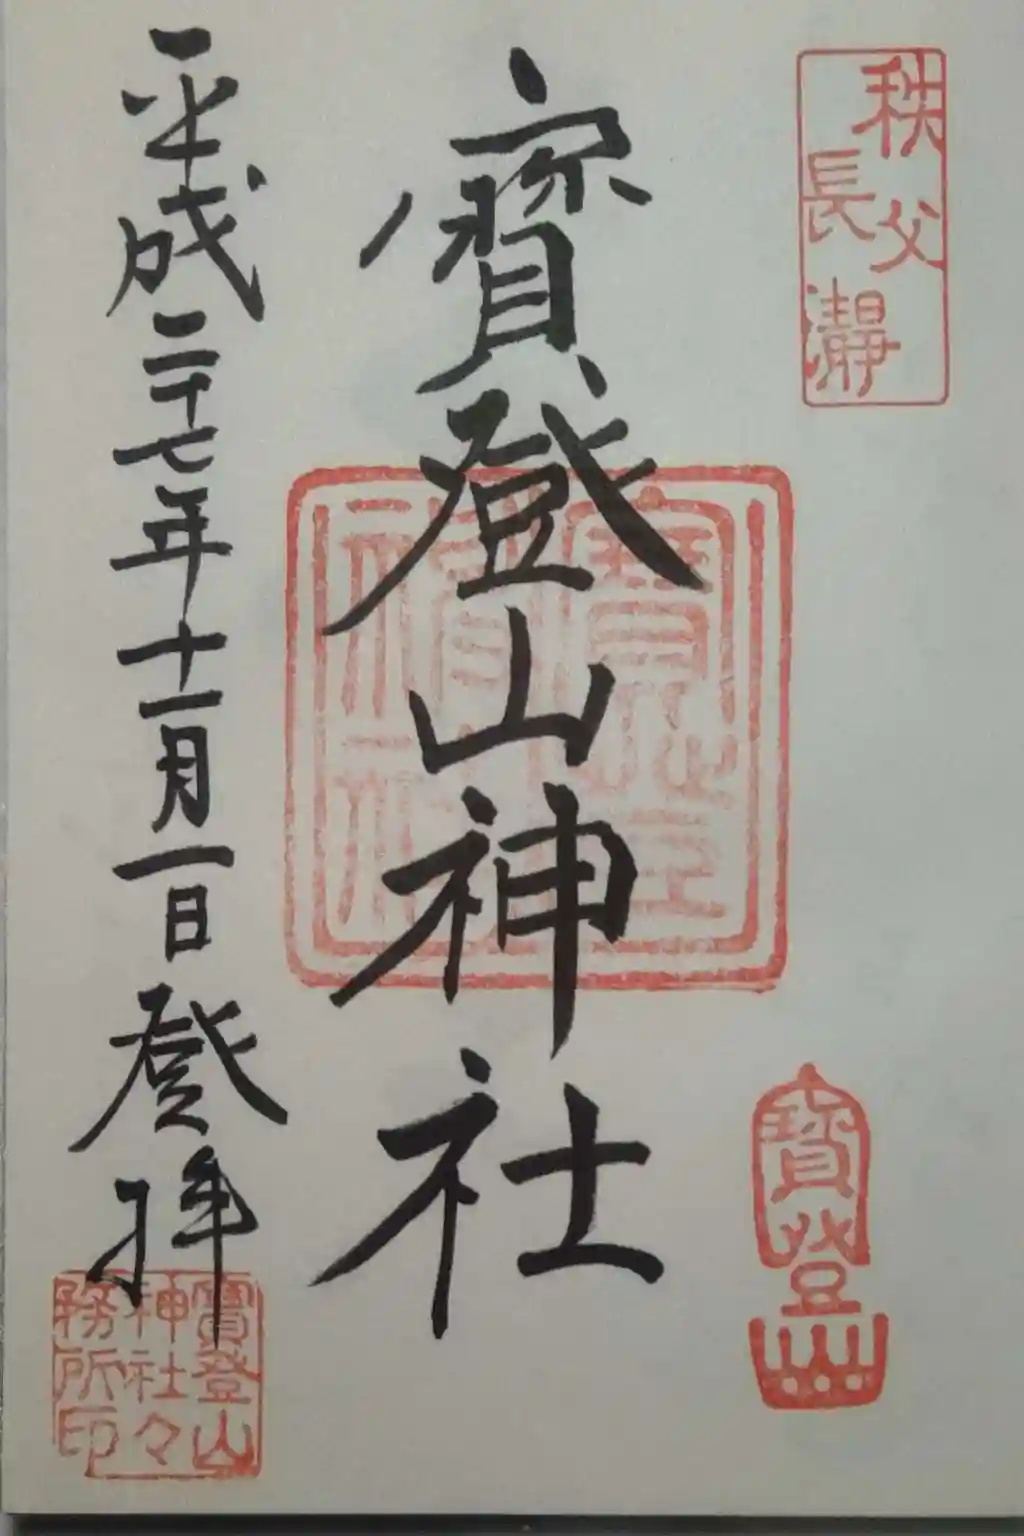 秩父
長瀞
寶登山神社
寶登山
平成二十七年十一月一日登拝
寶登山
神社々
務所印